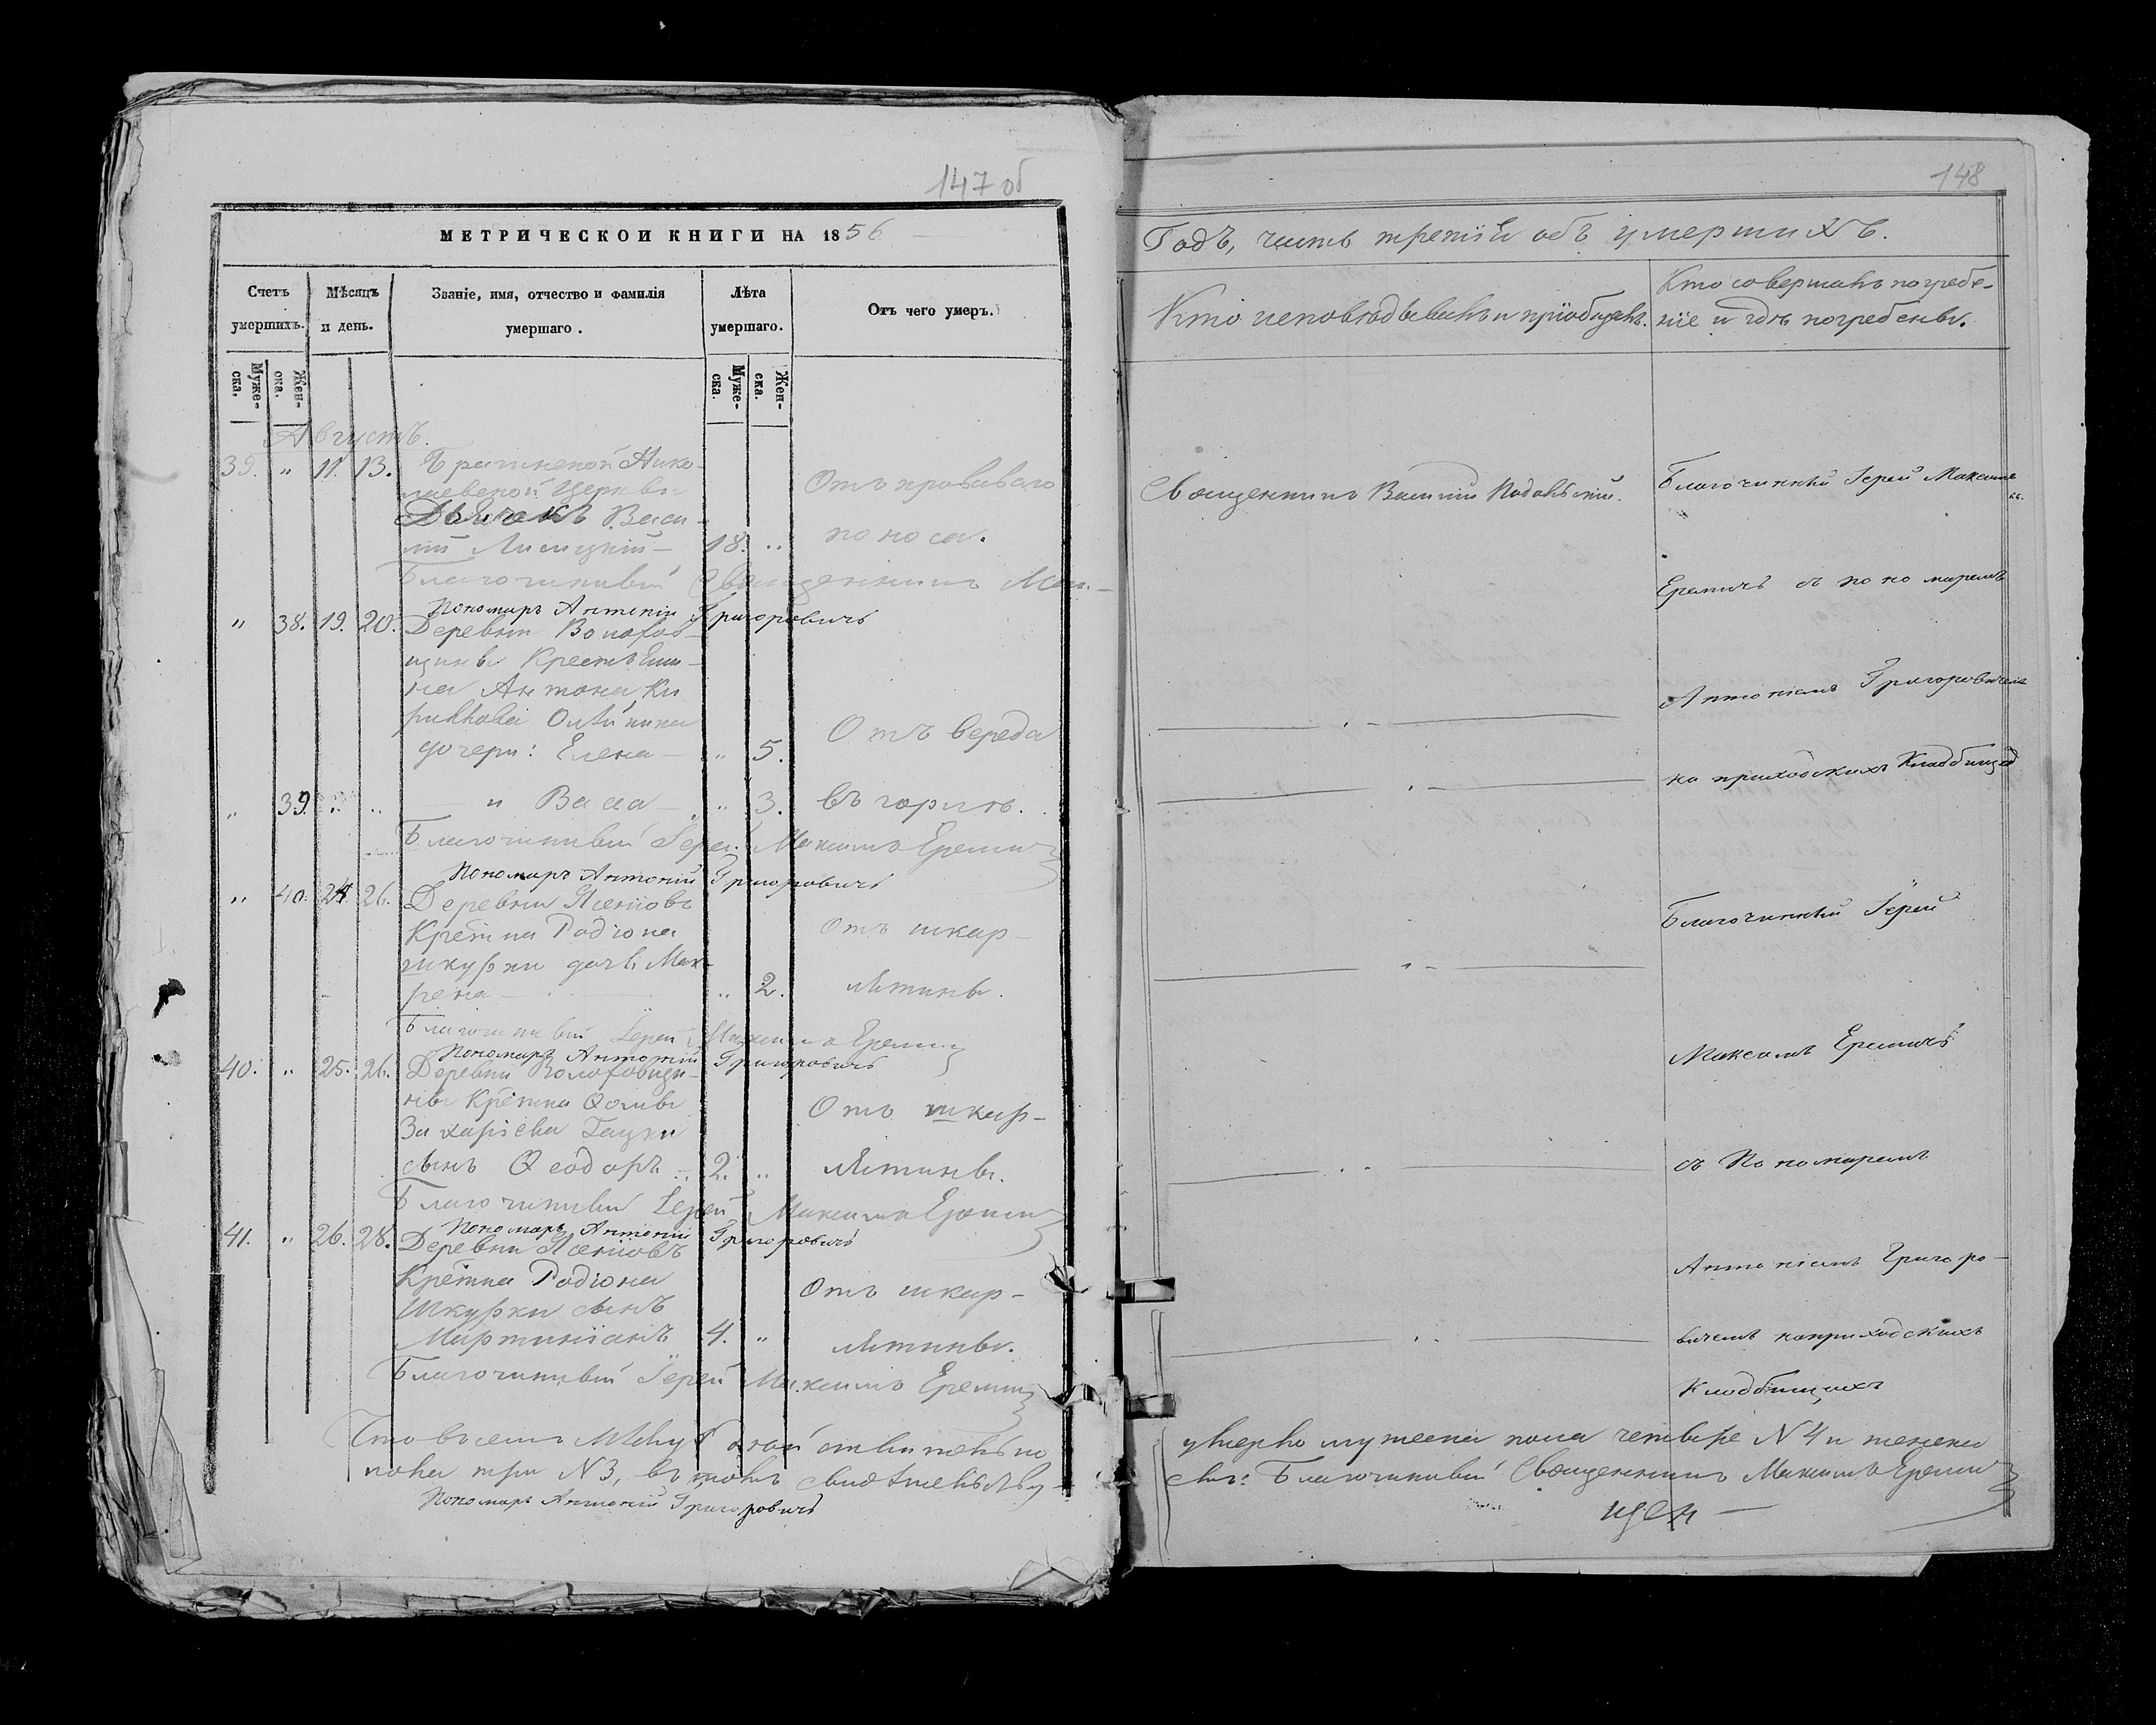 147 об
МЕТРИЧЕСКОЙ КНИГИ НА 1856
Счетъ умершихъ.
Мѣсяцъ и день.
Званіе, имя, отчество и фамилія умершаго.
Лѣта умершаго.
Отъ чего умеръ.
Муже-ска.
Жен-ска.
Муже-ска.
Жен-ска.
Августъ.
39. " 11. 13. Брагинской Нико-
лаевской Церкви
Дьячекъ Васи-
лій Лисицкій 18. "
Отъ кроваваго
поноса.
Благочинный Священникъ
Пономарь Антоній Григоровичъ
" 38. 19. 20. Деревни
щины Крестьяни-
на Антона Ки
дочери: Елена " 5.
Отъ вереда
" 39. " " и Васа " 3. въ горлѣ.
Благочинный Іерей Максимъ Еремич
Пономарь Антоній Григоровичъ
" 40. 24. 26. Деревни Ясеновъ
Крет на Родіона
шкурки дочь Мак-
рена " 2.
Отъ шкар-
лятины.
Благочинный Іерей Максимъ Еремич
Пономарь Антоній Григоровичъ
40. " 25. 26. Деревни
ны Кретна Ѳомы
Захаріева Гацки
сынъ Ѳеодоръ 2. "
Отъ шкар-
лятины.
Благочинный Іерей Максимъ Еремич
Пономарь Антоній Григоровичъ
41. " 26. 28. Деревни Ясеновъ
Кретна Родіона
Шкурки сынъ
Мартиніанъ 4. "
Отъ шкар-
лятины.
Благочинный Іерей Максимъ Еремич
Что въ семъ мѣсяцѣ
пола три N 3, въ томъ свидѣтельству
Пономарь Антоній Григоровичъ
148
Годъ, часть третій объ умершихъ.
Кто исповѣдывалъ и пріобщалъ.
Кто совершалъ погребе-
ніе и гдѣ погребены.
Священникъ Василій
Благочинный Іерей Максимъ
Еремичъ съ пономаремъ
Антоніемъ Григоровичемъ
на приходскихъ Кладбищах
Благочинный Іерей
Максимъ Еремичъ
съ Пономаремъ
Антоніемъ Григоро-
вичемъ на приходскихъ
Кладбищахъ
умерло мужеска пола четыре N 4 и женска
Благочинный Священникъ Максимъ Еремич